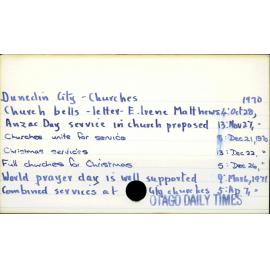 Dunedin City - Churches 1970
Church bells -letter- E. Irene Matthews 4: Oct 28,
Anzac Day service in church proposed 13: Nov 27, "
Churches unite for service 8: Dec 21, 1970
Christmas services 13: Dec 22, "
Full churches for Christmas 5: Dec 26, "
World prayer day is well supported 9: Mar 6, 1971
Combined services at city churches 5: Ap 7, "
OTAGO DAILY TIMES